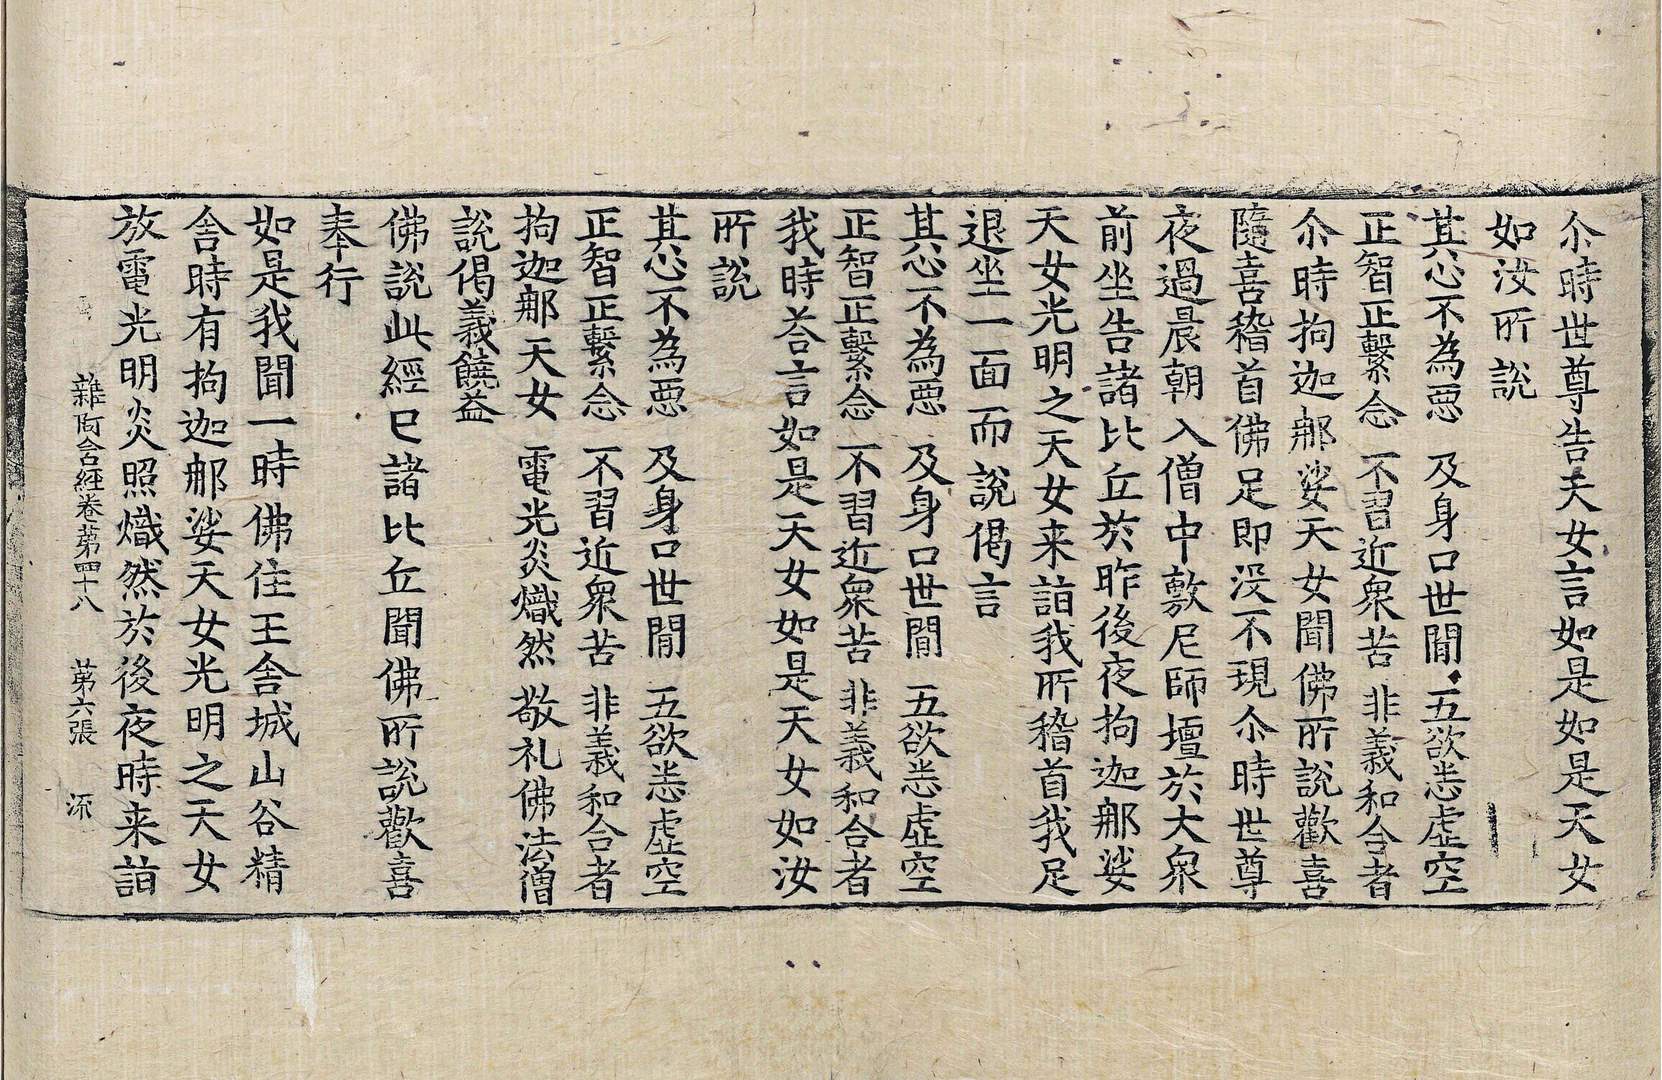 尒時世尊告天女言如是如是天女
如汝所說
其心不為惡　及身口世閒　五欲悉虛空
正智正繫念　不習近衆苦　非義和合者
尒時拘迦那娑天女聞佛所說歡喜
隨喜稽首佛足即没不現尒時世尊
夜過晨朝入僧中敷尼師壇於大衆
前坐告諸比丘於昨後夜拘迦那娑
天女光明之天女来詣我所稽首我足
退坐一面而說偈言
其心不為惡　及身口世閒　五欲悉虛空
正智正繫念　不習近衆苦　非義和合者
我時荅言如是天女如是天女如汝
所說
其心不為惡　及身口世閒　五欲悉虛空
正智正繫念　不習近衆苦　非義和合者
拘迦那天女　電光炎熾然　敬礼佛法僧
說偈義饒益
佛說此經已諸比丘聞佛所說歡喜
奉行
如是我聞一時佛住王舍城山谷精
舍時有拘迦那娑天女光明之天女
放電光明炎照熾然於後夜時来詣
雜阿含経卷第四十八　第六張